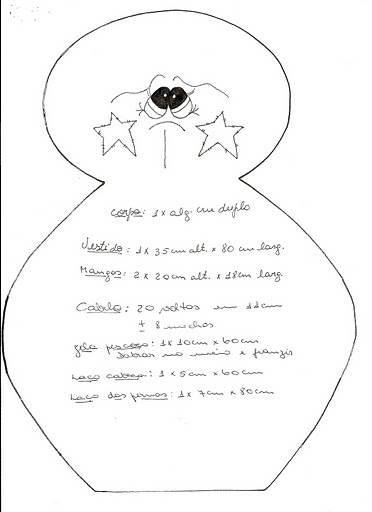 corpo: 1 x alg. cru duplo
Vestido: 1 x 35cm alt. x 80 cm larg.
Mangas: 2 x 20cm alt. x 18cm larg.
Cabelo: 20 voltas em 11cm
± 8 mechas
gola pescoço: 1 x 10cm x 60cm
Dobrar no meio e franzir
Laço cabeça: 1 x 5cm x 60cm
Laço das pernas: 1 x 7cm x 80cm